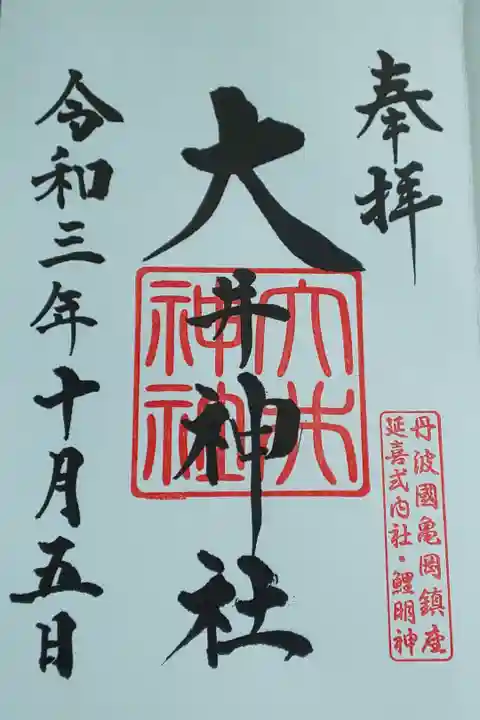 奉拝
大井神社
令和三年十月五日
丹波國亀岡鎮座
延喜式内社・鯉明神